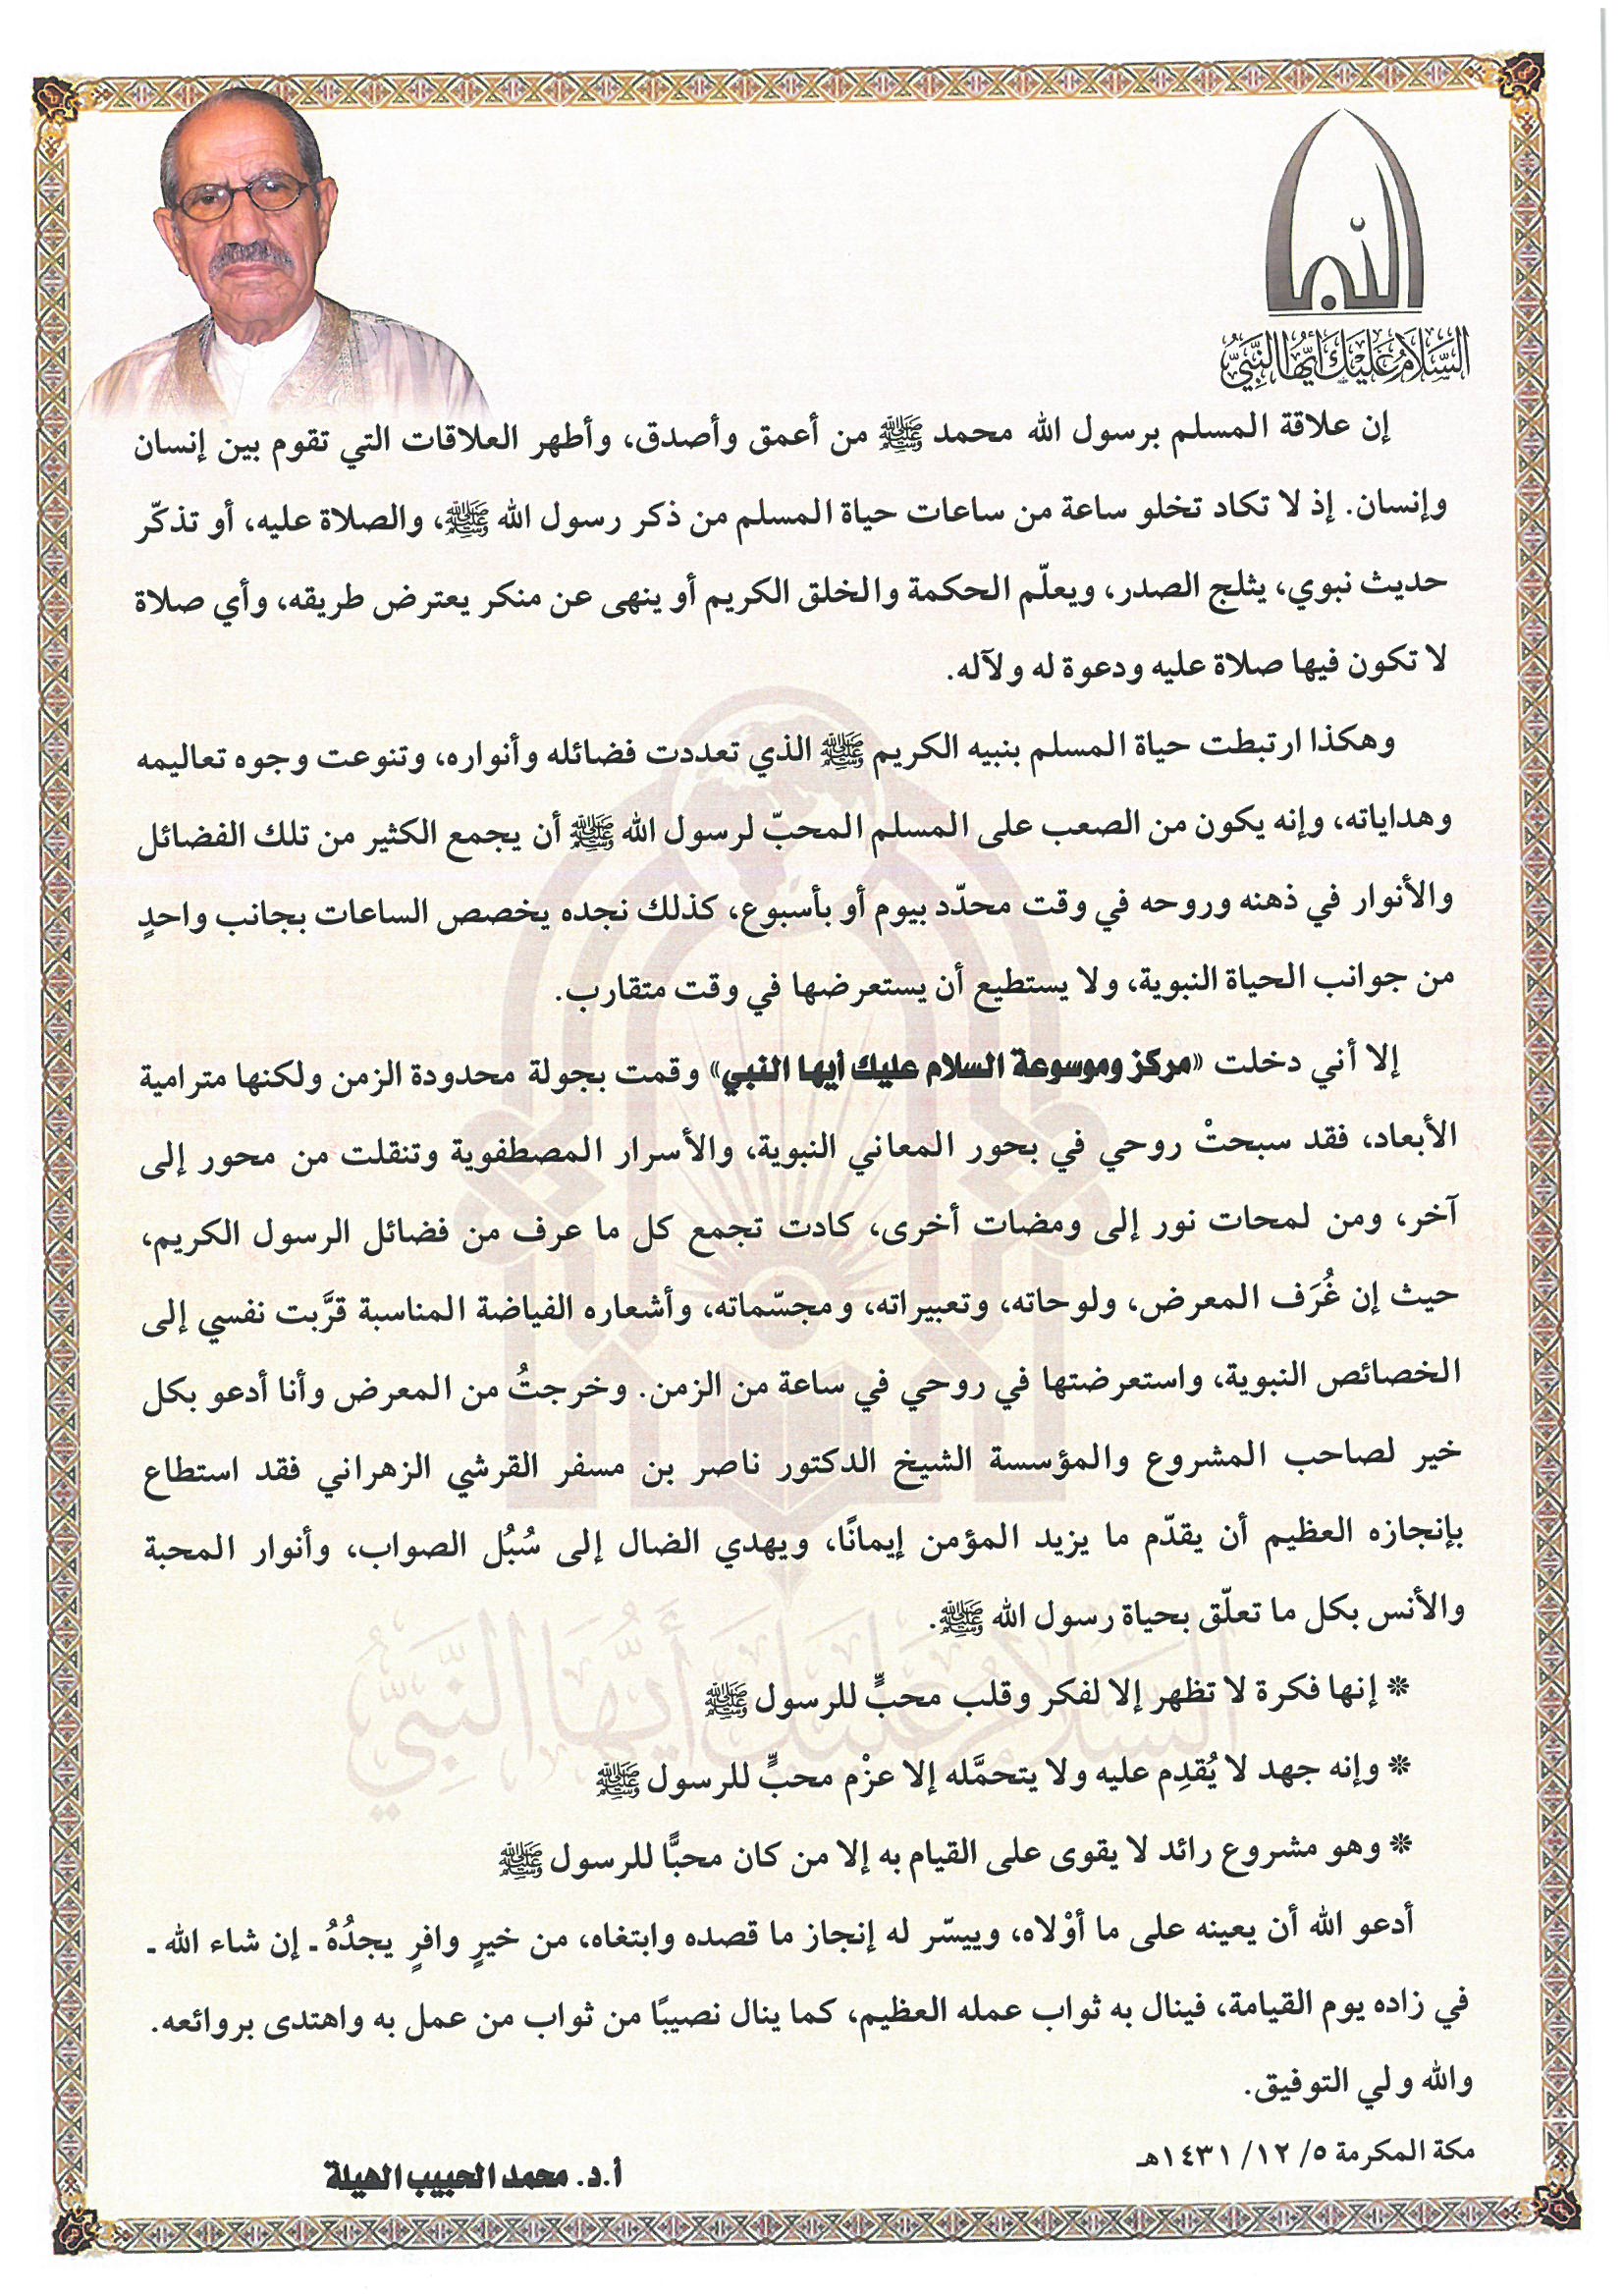 النبي
السَّلَامُ عَلَيْكَ أَيُّهَا النَّبِيُّ
إن علاقة المسلم برسول الله محمد ﷺ من أعمق وأصدق، وأطهر العلاقات التي تقوم بين إنسان
وإنسان. إذ لا تكاد تخلو ساعة من ساعات حياة المسلم من ذكر رسول الله ﷺ، والصلاة عليه، أو تذكّر
حديث نبوي، يثلج الصدر، ويعلّم الحكمة والخلق الكريم أو ينهى عن منكر يعترض طريقه، وأي صلاة
لا تكون فيها صلاة عليه ودعوة له ولآله.
وهكذا ارتبطت حياة المسلم بنبيه الكريم ﷺ الذي تعددت فضائله وأنواره، وتنوعت وجوه تعاليمه
وهداياته، وإنه يكون من الصعب على المسلم المحبّ لرسول الله ﷺ أن يجمع الكثير من تلك الفضائل
والأنوار في ذهنه وروحه في وقت محدّد بيوم أو بأسبوع، كذلك نجده يخصص الساعات بجانب واحدٍ
من جوانب الحياة النبوية، ولا يستطيع أن يستعرضها في وقت متقارب.
إلا أني دخلت «مركز وموسوعة السلام عليك أيها النبي» وقمت بجولة محدودة الزمن ولكنها مترامية
الأبعاد، فقد سبحتْ روحي في بحور المعاني النبوية، والأسرار المصطفوية وتنقلت من محور إلى
آخر، ومن لمحات نور إلى ومضات أخرى، كادت تجمع كل ما عرف من فضائل الرسول الكريم،
حيث إن غُرَف المعرض، ولوحاته، وتعبيراته، ومجسّماته، وأشعاره الفياضة المناسبة قرَّبت نفسي إلى
الخصائص النبوية، واستعرضتها في روحي في ساعة من الزمن. وخرجتُ من المعرض وأنا أدعو بكل
خير لصاحب المشروع والمؤسسة الشيخ الدكتور ناصر بن مسفر القرشي الزهراني فقد استطاع
بإنجازه العظيم أن يقدّم ما يزيد المؤمن إيمانًا، ويهدي الضال إلى سُبُل الصواب، وأنوار المحبة
والأنس بكل ما تعلّق بحياة رسول الله ﷺ.
❊ إنها فكرة لا تظهر إلا لفكر وقلب محبٍّ للرسول ﷺ
❊ وإنه جهد لا يُقدِم عليه ولا يتحمَّله إلا عزْم محبٍّ للرسول ﷺ
❊ وهو مشروع رائد لا يقوى على القيام به إلا من كان محبًّا للرسول ﷺ
أدعو الله أن يعينه على ما أوْلاه، وييسّر له إنجاز ما قصده وابتغاه، من خيرٍ وافرٍ يجدُهُ ـ إن شاء الله ـ
في زاده يوم القيامة، فينال به ثواب عمله العظيم، كما ينال نصيبًا من ثواب من عمل به واهتدى بروائعه.
والله ولي التوفيق.
مكة المكرمة ٥/ ١٢/ ١٤٣١هـ
أ.د. محمد الحبيب الهيلة